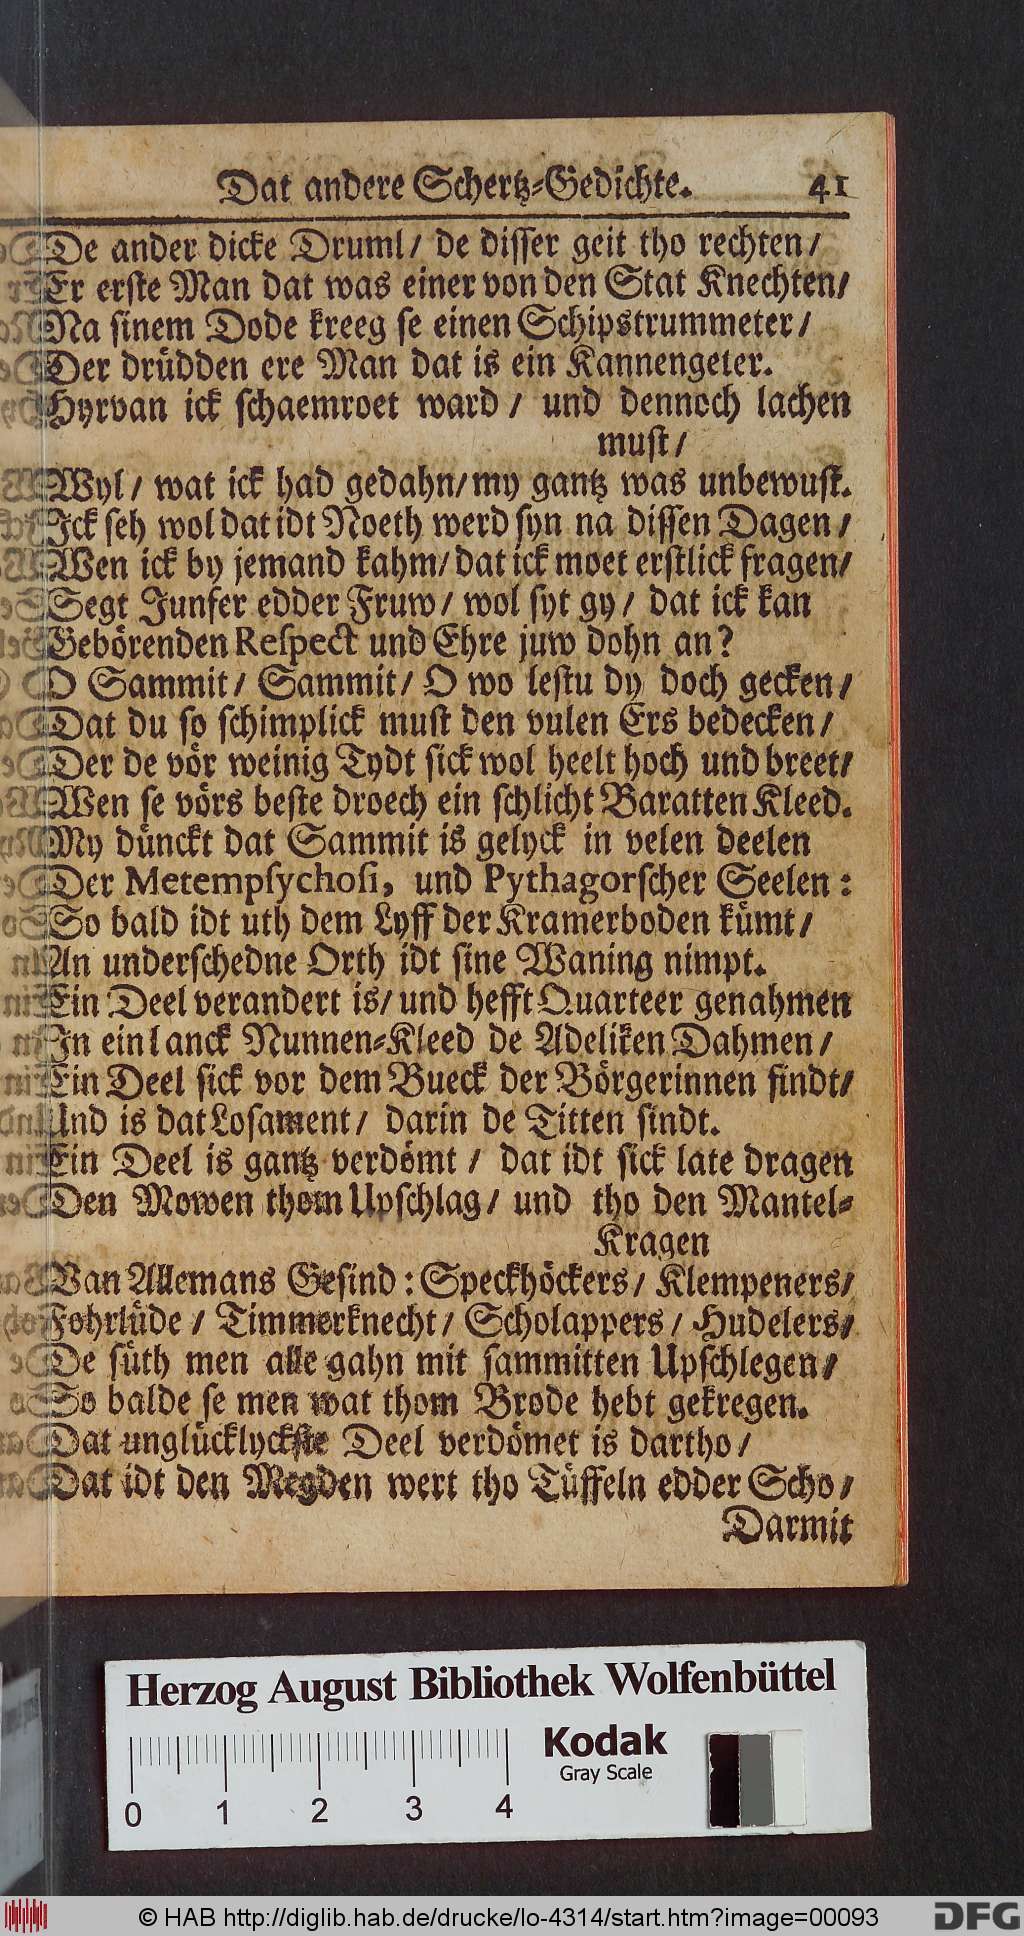 Dat andere Schertz-Gedichte. 41
De ander dicke Druml/ de disser geit tho rechten/
Er erste Man dat was einer von den Stat Knechten/
Na sinem Dode kreeg se einen Schipstrummeter/
Der drüdden ere Man dat is ein Kannengeter.
Hyrvan ick schaemroet ward/ und dennoch lachen
must/
Wyl/ wat ick had gedahn/ my gantz was unbewust.
Ick seh wol dat idt Noeth werd syn na dissen Dagen/
Wen ick by jemand kahm/ dat ick moet erstlick fragen/
Segt Junfer edder Fruw/ wol syt gy/ dat ick kan
Gebörenden Respect und Ehre juw dohn an?
O Sammit/ Sammit/ O wo lestu dy doch gecken/
Dat du so schimplick must den vulen Ers bedecken/
Der de vör weinig Tydt sick wol heelt hoch und breet/
Wen se vörs beste droech ein schlicht Baratten Kleed.
My dünckt dat Sammit is gelyck in velen deelen
Der Metempsychosi, und Pythagorscher Seelen:
So bald idt uth dem Lyff der Kramerboden kümt/
An underschedne Orth idt sine Waning nimpt.
Ein Deel verandert is/ und hefft Quarteer genahmen
In ein lanck Nunnen-Kleed de Adeliken Dahmen/
Ein Deel sick vor dem Bueck der Börgerinnen findt/
Und is dat Losament/ darin de Titten sindt.
Ein Deel is gantz verdömt/ dat idt sick late dragen
Den Mowen thom Upschlag/ und tho den Mantel-
Kragen
Van Allemans Gesind: Speckhöckers/ Klempeners/
Fohrlüde/ Timmerknecht/ Scholappers/ Hudelers/
De süth men alle gahn mit sammitten Upschlegen/
So balde se men wat thom Brode hebt gekregen.
Dat unglücklyckste Deel verdömet is dartho/
Dat idt den Megden wert tho Tüffeln edder Scho/
Darmit
Herzog August Bibliothek Wolfenbüttel
Kodak
Gray Scale
0 1 2 3 4
© HAB http://diglib.hab.de/drucke/lo-4314/start.htm?image=00093
DFG